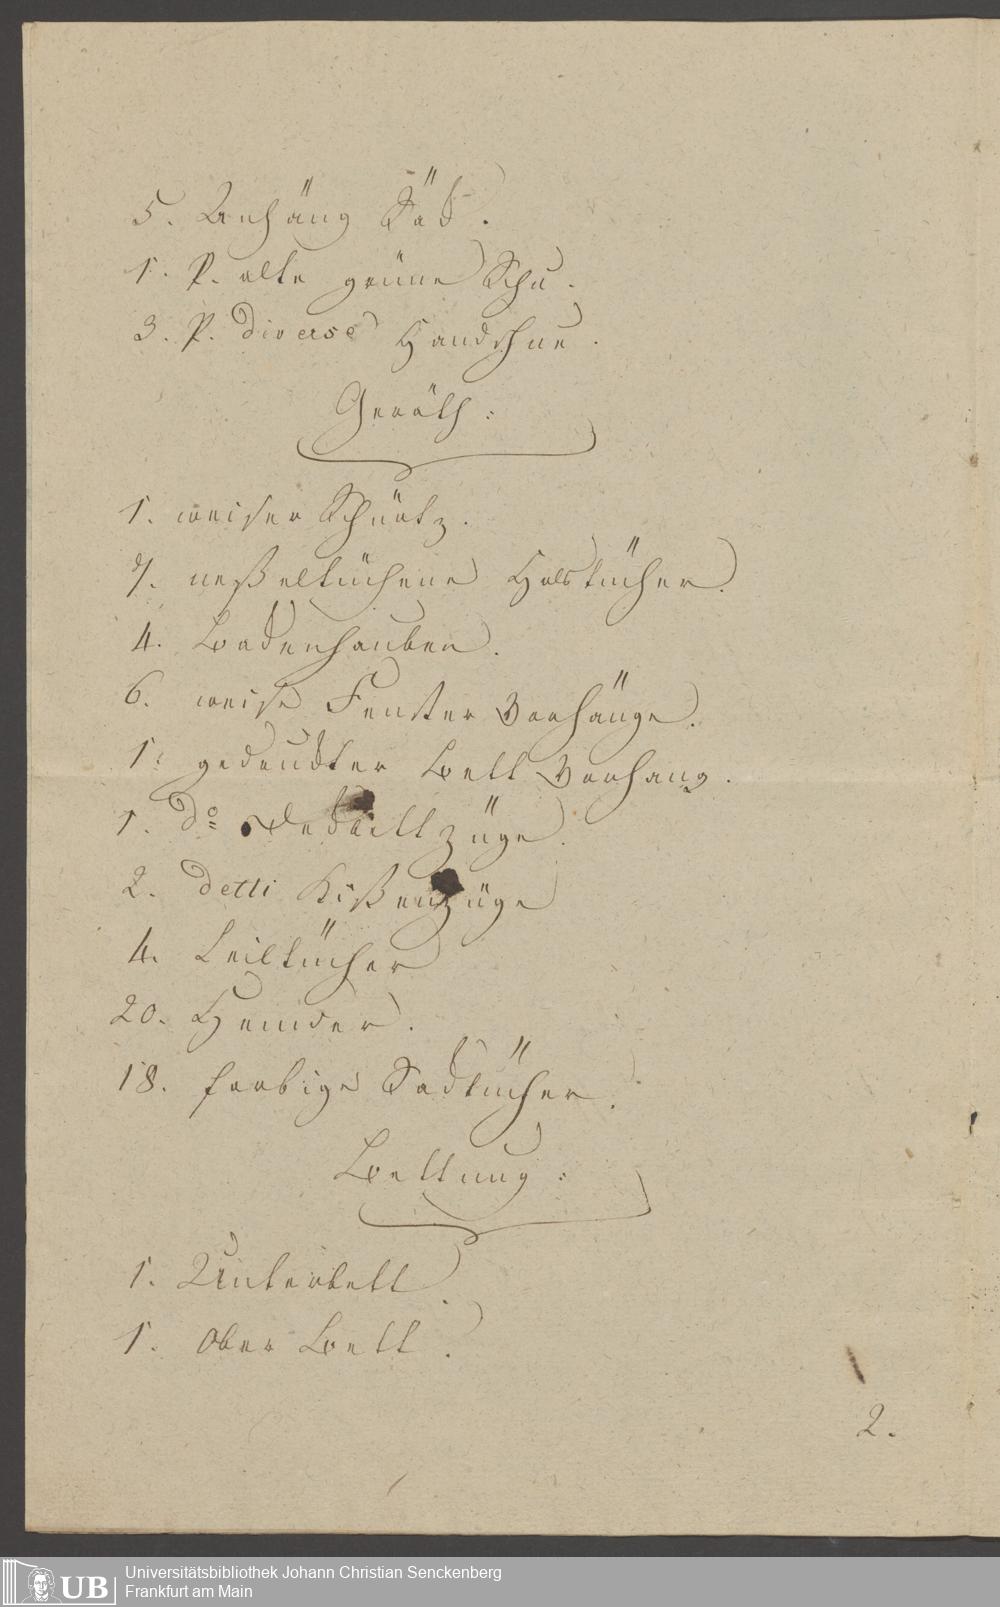 5. Anhäng Säck.
1. P. alte grüne Schu.
3. P. diverse Handschue.
Geräth:
1. weiser Schürtz.
7. neßeltüchene Halstücher.
4. Badenhauben.
6. weise Fenster Vorhänge.
1. gedruckter Bett Vorhang.
1. do Deckbettzüge.
2. detti Kißenzüge
4. Leiltücher
20. Hemder.
18. farbige Sacktücher.
Bettung:
1. Unterbett.
1. Ober Bett.
2.
UB
Universitätsbibliothek Johann Christian Senckenberg
Frankfurt am Main